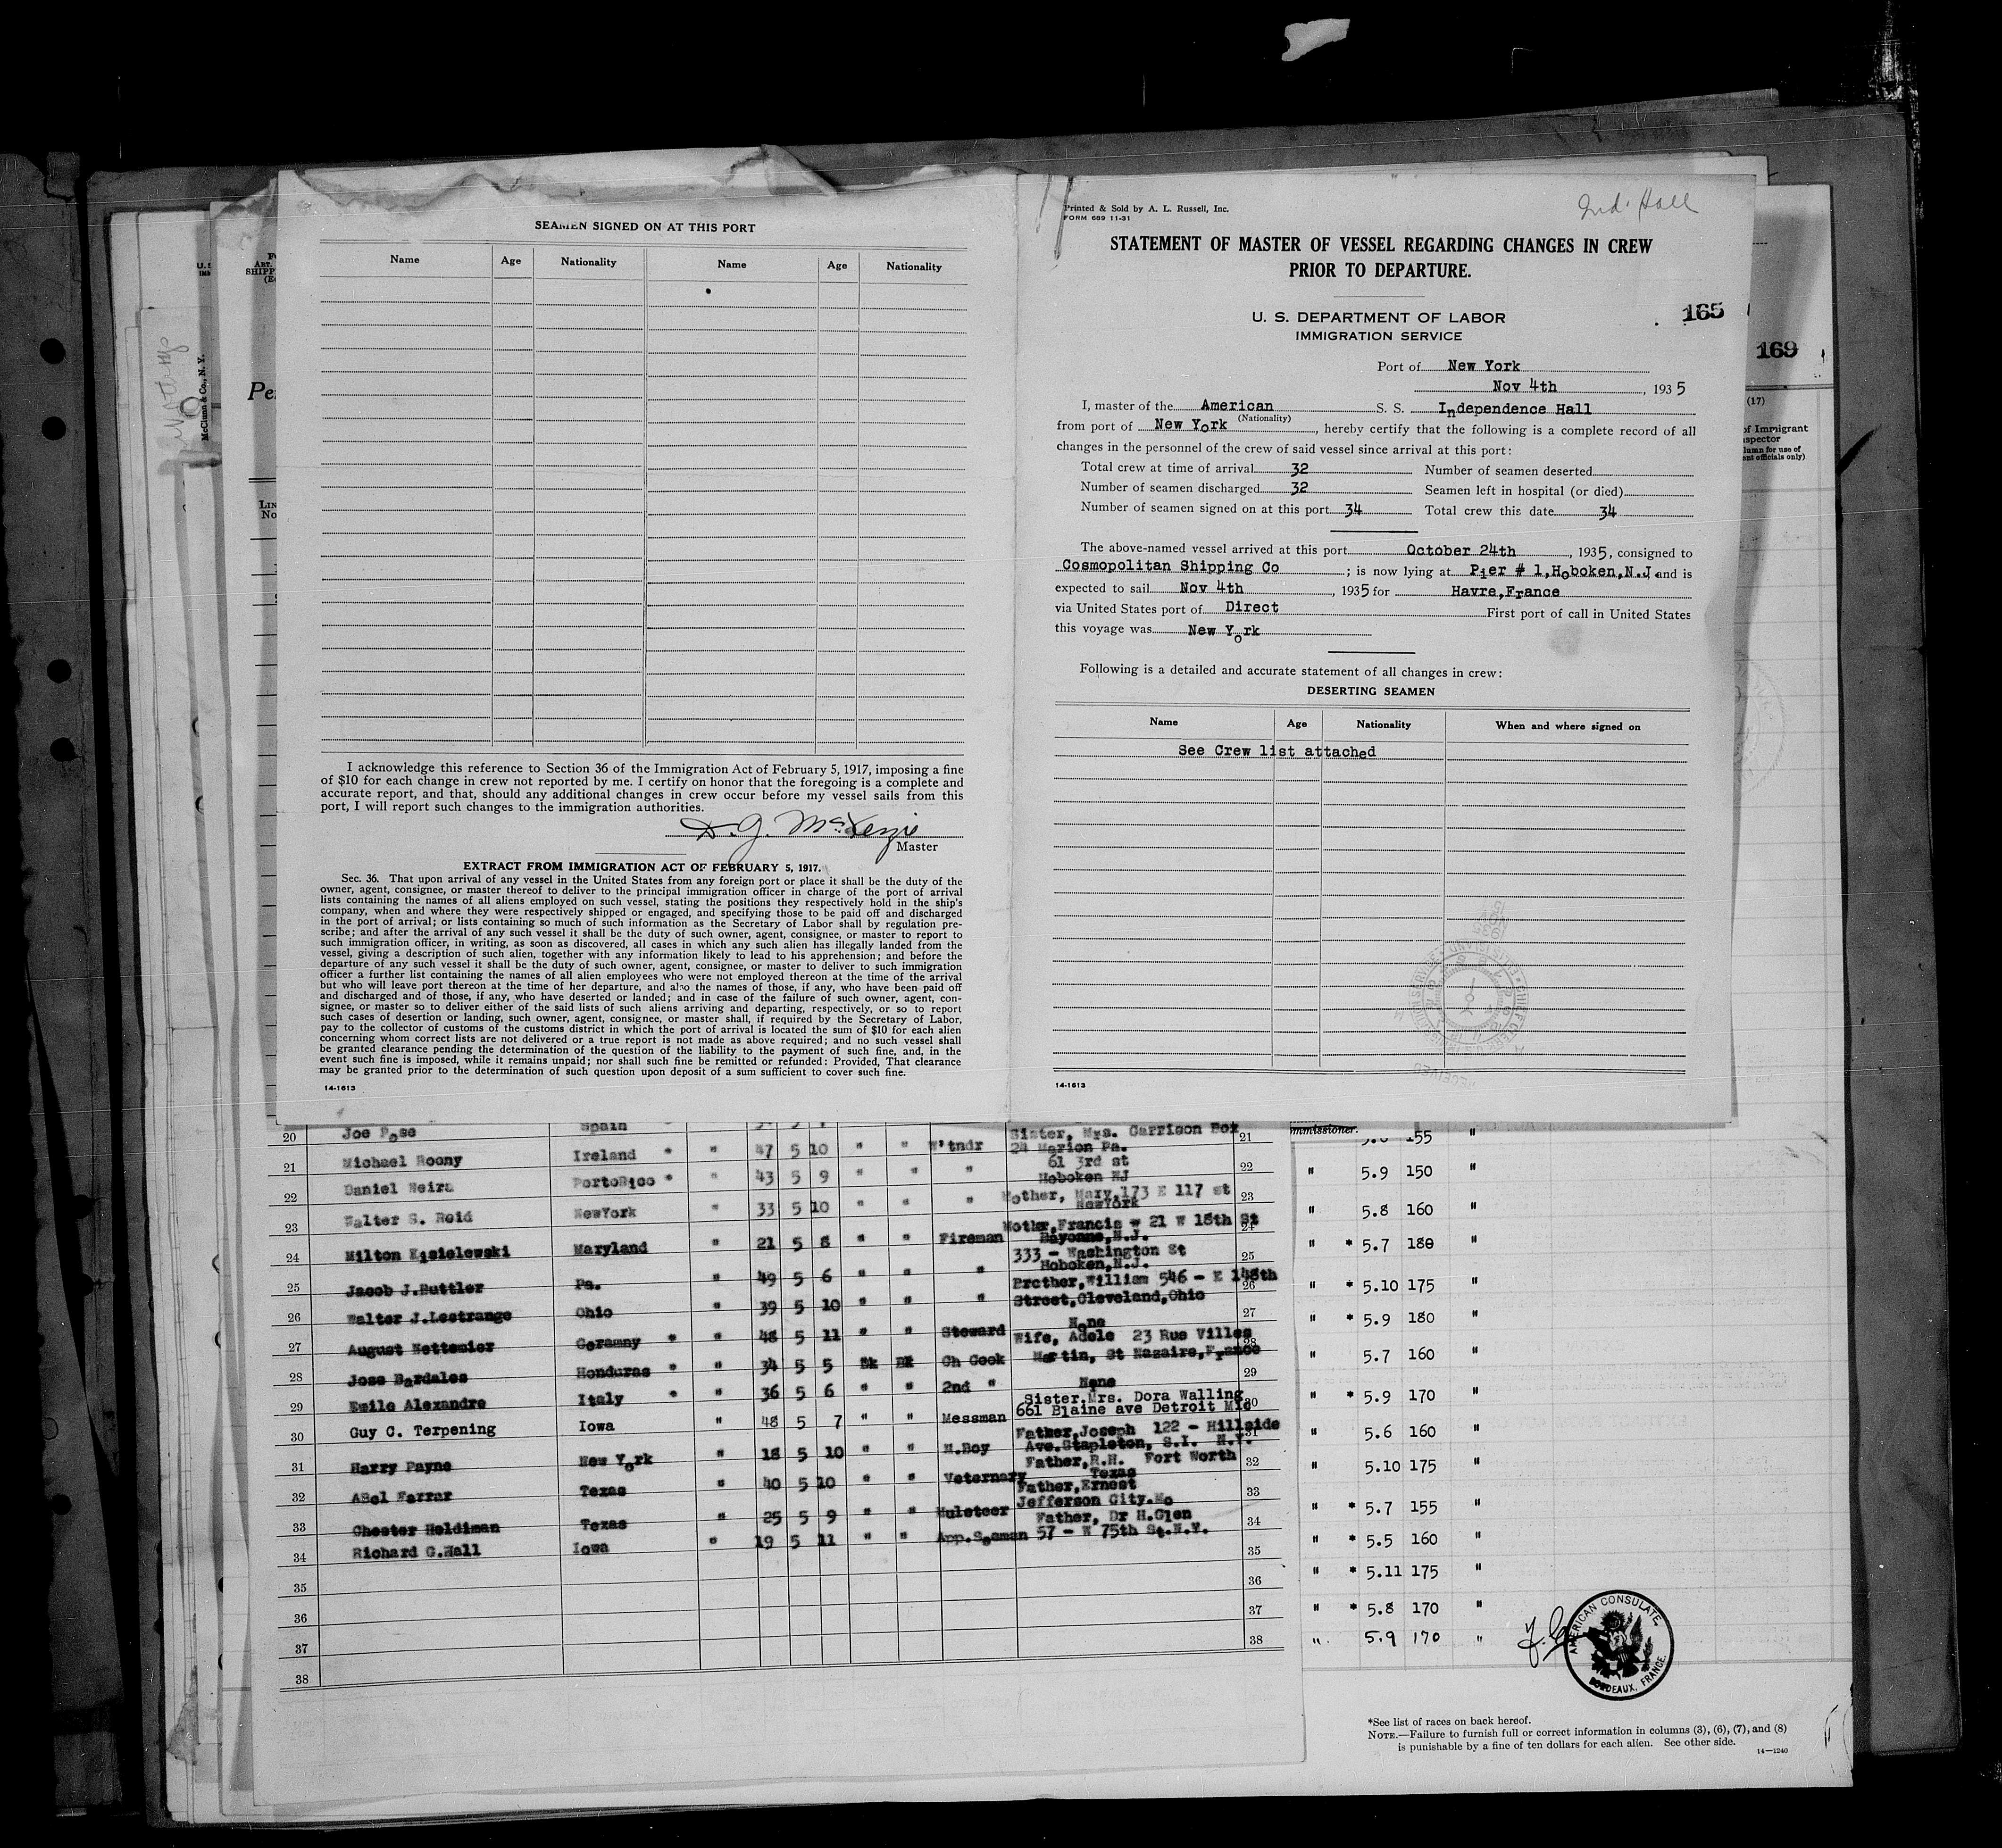 SEAMEN SIGNED ON AT THIS PORT
Name Age Nationality Name Age Nationality
I acknowledge this reference to Section 36 of the Immigration Act of February 5, 1917, imposing a fine
of $10 for each change in crew not reported by me. I certify on honor that the foregoing is a complete and
accurate report, and that, should any additional changes in crew occur before my vessel sails from this
port, I will report such changes to the immigration authorities.
D. J. McKenzie
Master
EXTRACT FROM IMMIGRATION ACT OF FEBRUARY 5, 1917.
Sec. 36. That upon arrival of any vessel in the United States from any foreign port or place it shall be the duty of the
owner, agent, consignee, or master thereof to deliver to the principal immigration officer in charge of the port of arrival
lists containing the names of all aliens employed on such vessel, stating the positions they respectively hold in the ship's
company, when and where they were respectively shipped or engaged, and specifying those to be paid off and discharged
in the port of arrival; or lists containing so much of such information as the Secretary of Labor shall by regulation pre-
scribe; and after the arrival of any such vessel it shall be the duty of such owner, agent, consignee, or master to report to
such immigration officer, in writing, as soon as discovered, all cases in which any such alien has illegally landed from the
vessel, giving a description of such alien, together with any information likely to lead to his apprehension; and before the
departure of any such vessel it shall be the duty of such owner, agent, consignee, or master to deliver to such immigration
officer a further list containing the names of all alien employees who were not employed thereon at the time of the arrival
but who will leave port thereon at the time of her departure, and also the names of those, if any, who have been paid off
and discharged and of those, if any, who have deserted or landed; and in case of the failure of such owner, agent, con-
signee, or master so to deliver either of the said lists of such aliens arriving and departing, respectively, or so to report
such cases of desertion or landing, such owner, agent, consignee, or master shall, if required by the Secretary of Labor,
pay to the collector of customs of the customs district in which the port of arrival is located the sum of $10 for each alien
concerning whom correct lists are not delivered or a true report is not made as above required; and no such vessel shall
be granted clearance pending the determination of the question of the liability to the payment of such fine, and, in the
event such fine is imposed, while it remains unpaid; nor shall such fine be remitted or refunded: Provided, That clearance
may be granted prior to the determination of such question upon deposit of a sum sufficient to cover such fine.
14-1613
Ind. Hall
Printed & Sold by A. L. Russell, Inc.
FORM 689 11-31
STATEMENT OF MASTER OF VESSEL REGARDING CHANGES IN CREW
PRIOR TO DEPARTURE.
U. S. DEPARTMENT OF LABOR
IMMIGRATION SERVICE
165
Port of New York
Nov 4th, 1935
I, master of the American S. S. Independence Hall
(Nationality)
from port of New York, hereby certify that the following is a complete record of all
changes in the personnel of the crew of said vessel since arrival at this port:
Total crew at time of arrival 32 Number of seamen deserted
Number of seamen discharged 32 Seamen left in hospital (or died)
Number of seamen signed on at this port 34 Total crew this date 34
The above-named vessel arrived at this port October 24th, 1935, consigned to
Cosmopolitan Shipping Co; is now lying at Pier # 1,Hoboken,N.J. and is
expected to sail Nov 4th, 1935 for Havre,France
via United States port of Direct First port of call in United States
this voyage was New York
Following is a detailed and accurate statement of all changes in crew:
DESERTING SEAMEN
Name Age Nationality When and where signed on
See Crew list attached
14-1613
169
(17)
of Immigrant
McClunn & Co., N. Y.
20 Joe Pose Spain
21 Michael Roony Ireland * " 47 5 10 " " W'tndr Sister, Mrs. Garrison Box 21
24 Marion Pa.
22 Daniel Neira PortoRico * " 43 5 9 " " " 61 3rd st 22
Hoboken NJ
23 Walter S. Reid NewYork " 33 5 10 " " " Mother, Mary,173 E 117 st 23
NewYork
24 Milton Kisielewski Maryland " 21 5 8 " " Fireman Mother,Francis - 21 W 18th St 24
Bayonne,N.J.
25 Jacob J.Buttler Pa. " 49 5 6 " " " 333 - Washington St 25
Hoboken,N.J.
26 Walter J.Lestrange Ohio " 39 5 10 " " " Brother,William 546 - E 148th 26
Street,Cleveland,Ohio
27 August Nettemier Geramny * " 48 5 11 " " Steward None 27
28 Jose Bardales Honduras * " 34 5 5 Bk Bk Ch Cook Wife, Adele 23 Rue Villes 28
Martin, St Nazaire,France
29 Emile Alexandre Italy * " 36 5 6 " " 2nd " None 29
30 Guy C. Terpening Iowa " 48 5 7 " " Messman Sister.Mrs. Dora Walling 30
661 Blaine ave Detroit Mic
31 Harry Payne New York " 18 5 10 " " M.Boy Father,Joseph 122 - Hillside 31
Ave.Stapleton, S.I. N.Y.
32 ABel Farrar Texas " 40 5 10 " " Veternary Father,R.H. Fort Worth 32
Texas
33 Chester Holdiman Texas " 25 5 9 " " Muleteer Father,Ernest 33
Jefferson City.Mo
34 Richard G.Hall Iowa " 19 5 11 " " App.Seaman Father, Dr H.Glen 34
57 - W 75th St.N.Y.
35 35
36 36
37 37
38 38
155 "
" 5.9 150 "
" 5.8 160 "
" * 5.7 180 "
" * 5.10 175 "
" * 5.9 180 "
" 5.7 160 "
" * 5.9 170 "
" 5.6 160 "
" 5.10 175 "
" * 5.7 155 "
" * 5.5 160 "
" * 5.11 175 "
" * 5.8 170 "
" 5.9 170 "
AMERICAN CONSULATE,
BORDEAUX, FRANCE.
*See list of races on back hereof.
NOTE.—Failure to furnish full or correct information in columns (3), (6), (7), and (8)
is punishable by a fine of ten dollars for each alien. See other side.
14—1240